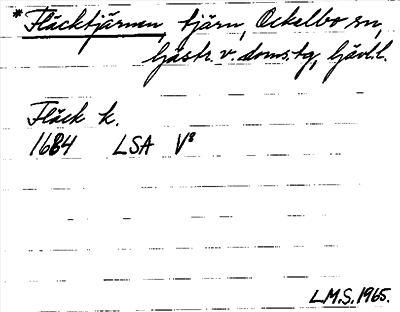 * Fläcktjärnen, tjärn, Ockelbo sn,
Gästr. v. doms.tg, Gävl.l.
Fläck k.
1684 LSA V8
L.M.S. 1965.